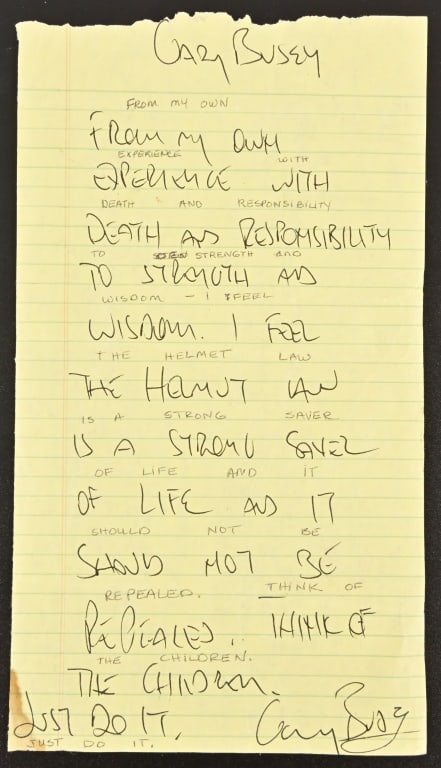 GARY BUSEY
FROM MY OWN
FROM MY OWN
EXPERIENCE WITH
EXPERIENCE WITH
DEATH AND RESPONSIBILITY
DEATH AND RESPONSIBILITY
TO STRENGTH AND
TO STRENGTH AND
WISDOM - I FEEL
WISDOM. I FEEL
THE HELMET LAW
THE HELMUT LAW
IS A STRONG SAVER
IS A STRONG SAVER
OF LIFE AND IT
OF LIFE AND IT
SHOULD NOT BE
SHOULD NOT BE
REPEALED. THINK OF
REPEALED.. THINK OF
THE CHILDREN.
THE CHILDREN.
JUST DO IT. Gary Busey
JUST DO IT.